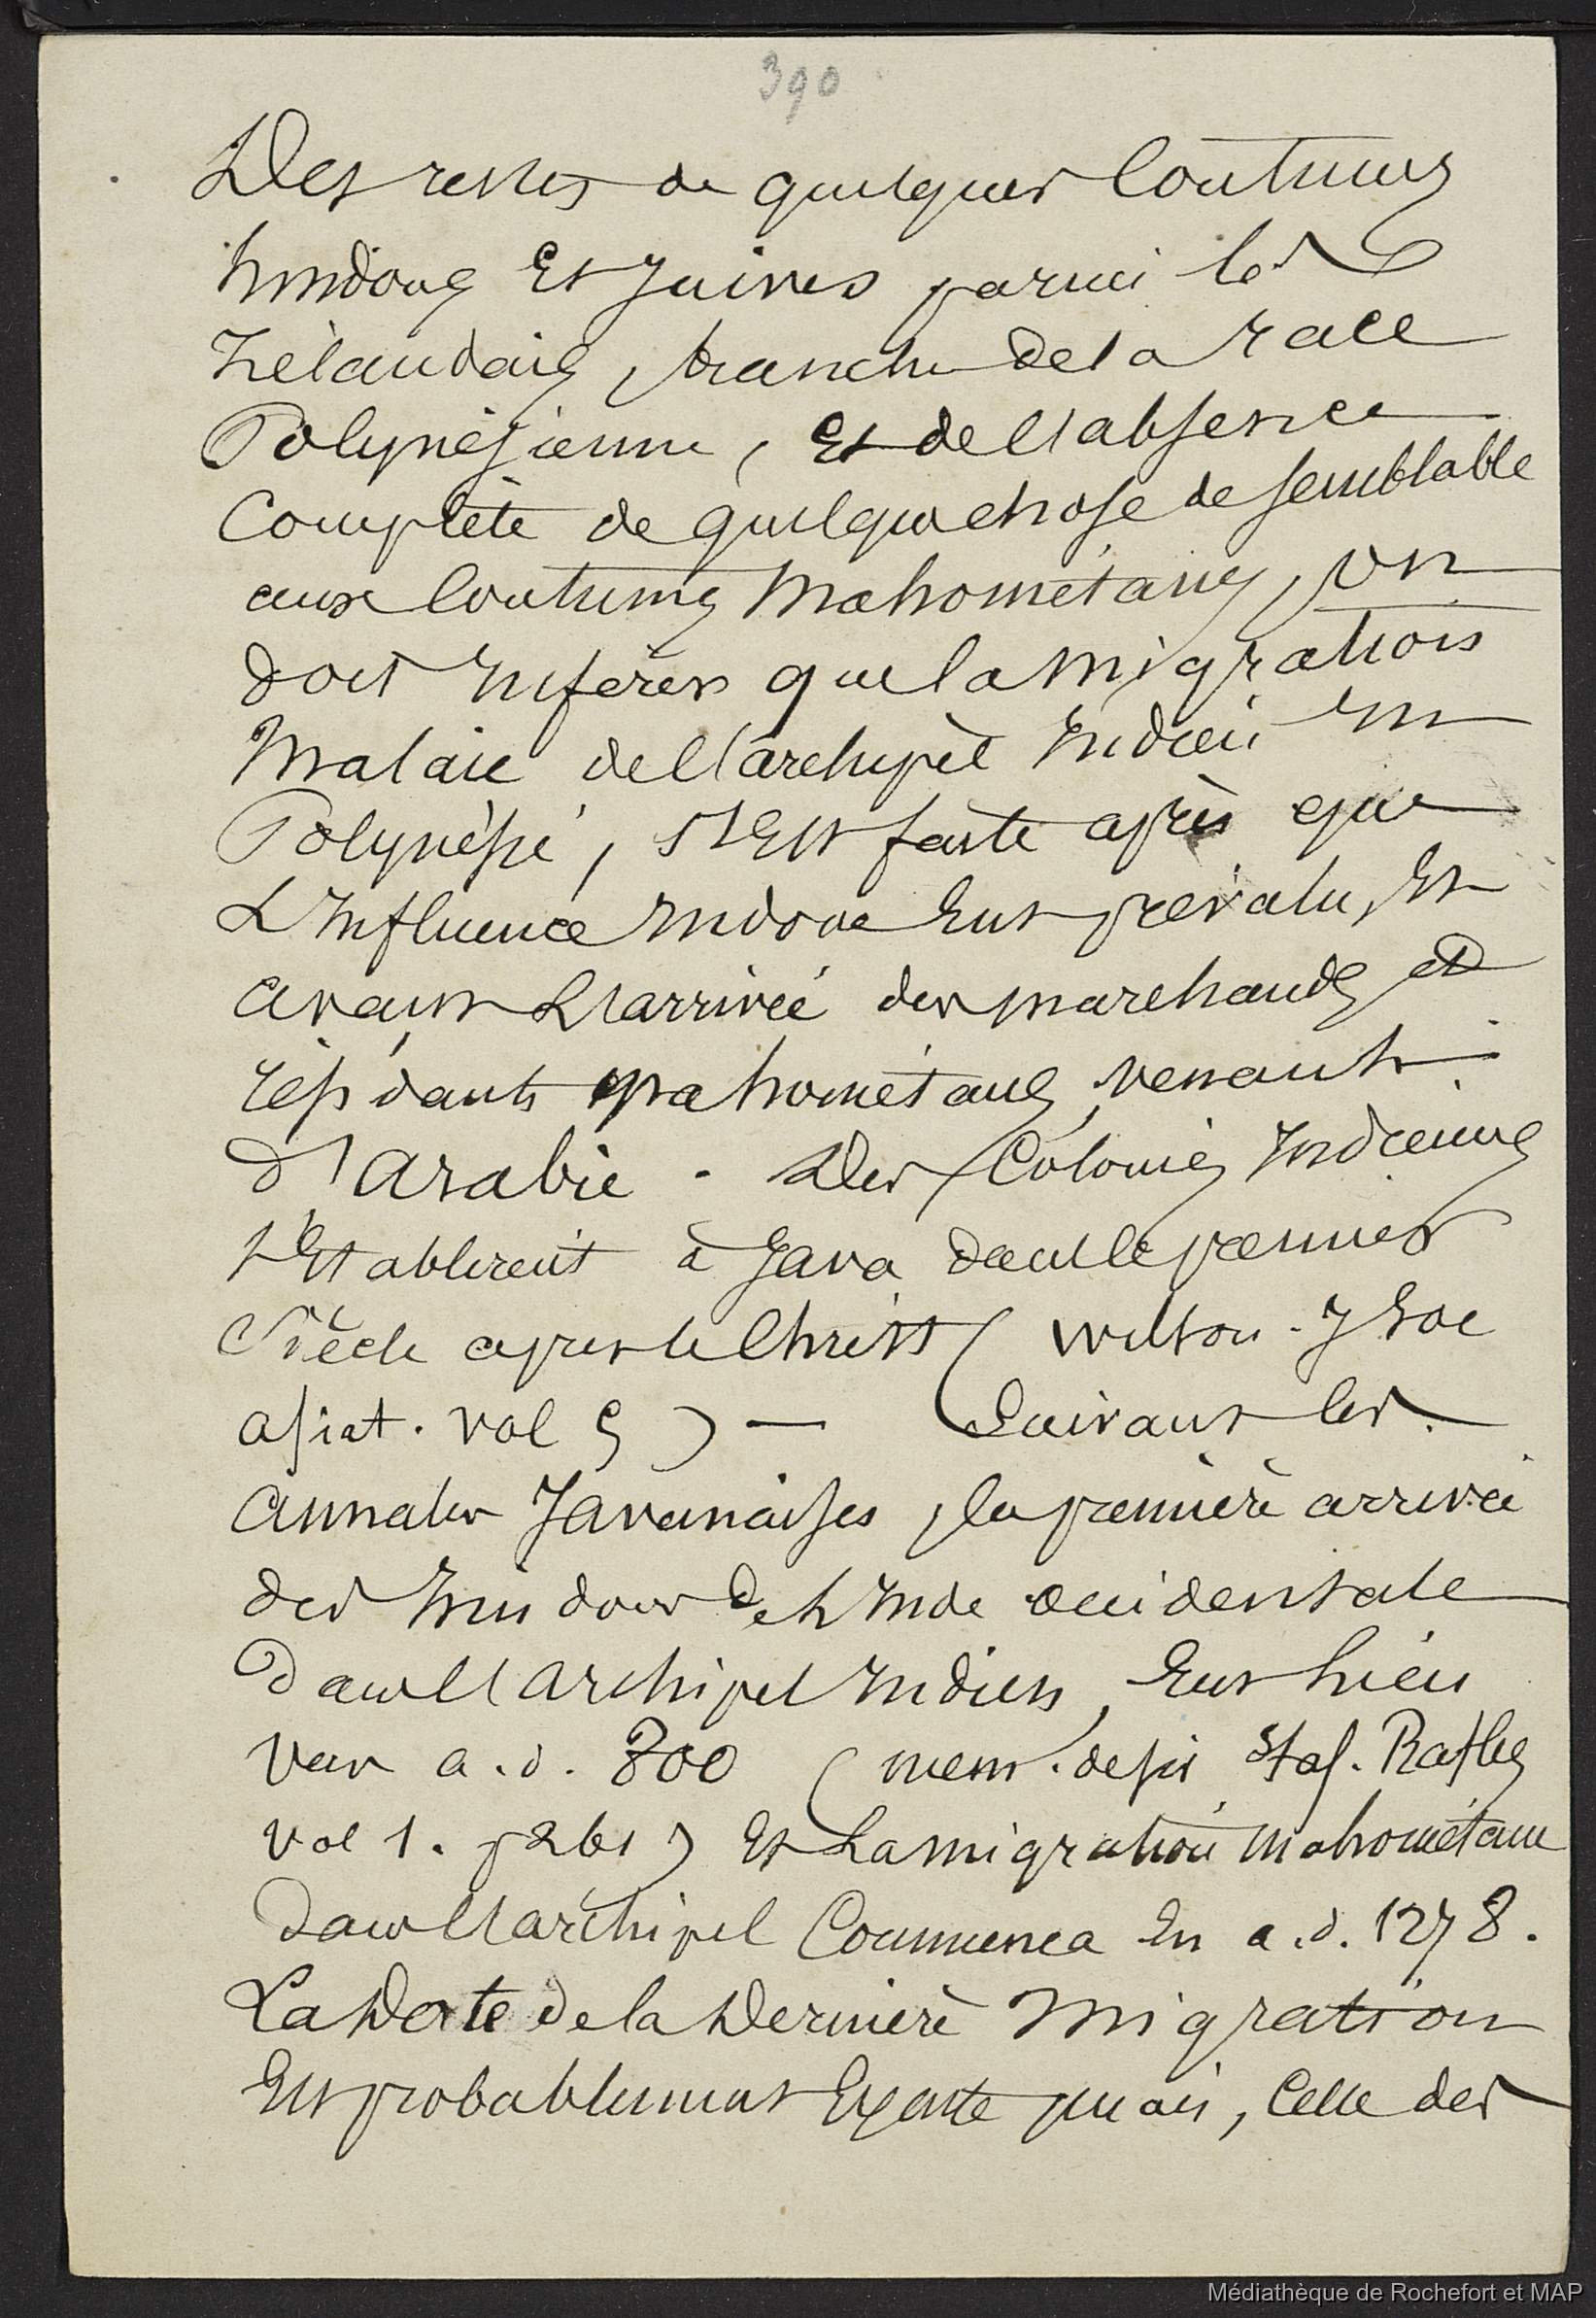 390
Des restes de quelques Coutumes
hindous Et Juives parmi les
Zélandais, branche de la race
Polynésienne, Et de l'absence
Complète de quelque chose de semblable
aux Coutumes Mahométanes, on
doit inférer que la Migration
Malaie de l'archipèl Indien En
Polynésie, s'Est faite après que
L'Influence Indoue Eut prévalu, Et
avant L'arrivée des marchands et
résidants mahométans, venant
d'Arabie. Des Colonies Indiennes
s'Etablirent à Java dans le premier
Siècle après le Christ (Wilson - J Soc
asiat. vol 5) — Suivant les
annales Javanaises, la première arrivée
des hindous de L'Inde occidentale
dans l'archipel Indien, Eut lieu
vers a.d. 800 (mem. de sir Staf. Raffles
vol 1. p 261) Et La migration mahométane
dans l'archipel Commença En a.d. 1278.
La Date de la Dernière Migration
Est probablement Exacte mais, Celle des
Médiathèque de Rochefort et MAP